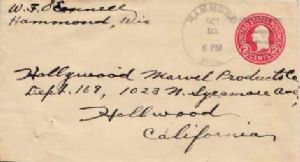 W. F. O'Connell
Hammond, Wis
HAMMOND
OCT
23
6 PM
WIS.
UNITED STATES POSTAGE
2 CENTS 2
Hollywood Marvel Products Co
Dept. 169, 1023 N. Sycamore Ave,
Hollwood
California